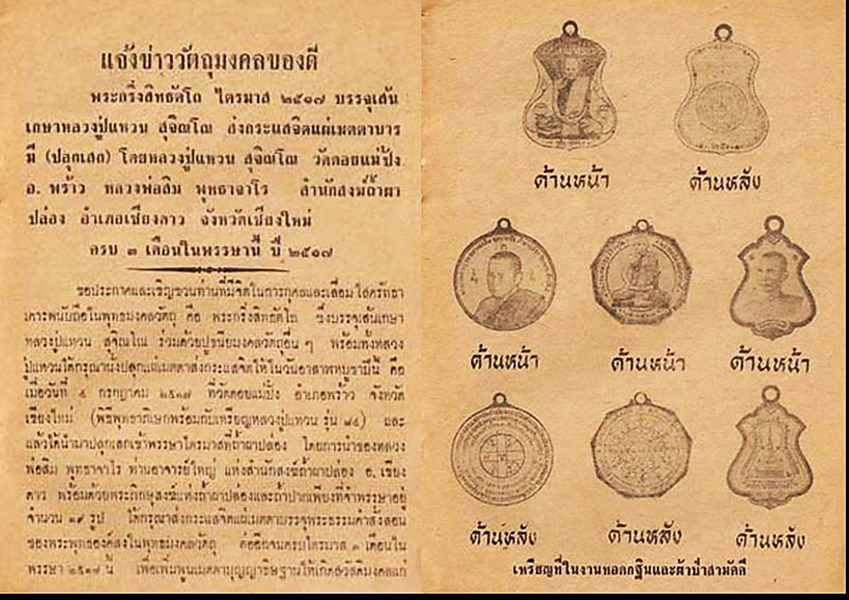 แจ้งข่าววัตถุมงคลของดี
พระกริ่งสิทธัตโถ ไตรมาส ๒๕๑๗ บรรจุเส้น
เกษาหลวงปู่แหวน สุจิณโณ ส่งกระแสจิตแผ่เมตตาบาร
มี (ปลุกเสก) โดยหลวงปู่แหวน สุจิณโณ วัดดอยแม่ปั๋ง
อ. พร้าว หลวงพ่อสิม พุทธาจาโร สำนักสงฆ์ถ้ำผา
ปล่อง อำเภอเชียงดาว จังหวัดเชียงใหม่
ครบ ๓ เดือนในพรรษานี้ ปี ๒๕๑๗
ขอประกาศและเชิญชวนท่านที่มีจิตในการกุศลและเลื่อมใสศรัทธา
เคารพนับถือในพุทธมงคลวัตถุ คือ พระกริ่งสิทธัตโถ ซึ่งบรรจุเส้นเกษา
หลวงปู่แหวน สุจิณโณ ร่วมด้วยปูชนียมงคลวัตถุอื่น ๆ พร้อมทั้งหลวง
ปู่แหวนได้กรุณานั่งปลุกแผ่เมตตาส่งกระแสจิตให้ในวันอาสาฬหบูชามีนี้ คือ
เมื่อวันที่ ๔ กรกฎาคม ๒๕๑๗ ที่วัดดอยแม่ปั๋ง อำเภอพร้าว จังหวัด
เชียงใหม่ (พิธีพุทธาภิเษกพร้อมกับเหรียญหลวงปู่แหวน รุ่น ๘๔) และ
แล้วได้นำมาปลุกเสกเข้าพรรษาไตรมาสที่ถ้ำผาปล่อง โดยการนำของหลวง
พ่อสิม พุทธาจาโร ท่านอาจารย์ใหญ่ แห่งสำนักสงฆ์ถ้ำผาปล่อง อ. เชียง
ดาว พร้อมด้วยพระภิกษุสงฆ์แห่งถ้ำผาปล่องและถ้ำปากเพียงที่จำพรรษาอยู่
จำนวน ๑๙ รูป ได้กรุณาส่งกระแสจิตแผ่เมตตาบรรจุพระธรรมคำสั่งสอน
ของพระพุทธองค์ลงในพุทธมงคลวัตถุ ต่ออีกจนครบไตรมาส ๓ เดือนใน
พรรษา ๒๕๑๗ นี้ เพื่อเพิ่มพูนเมตตาบุญญาธิษฐานให้เกิดสวัสดิมงคลแก่
ด้านหน้า ด้านหลัง
ด้านหน้า ด้านหน้า ด้านหน้า
ด้านหลัง ด้านหลัง ด้านหลัง
เหรียญที่ในงานทอดกฐินและผ้าป่าสามัคคี